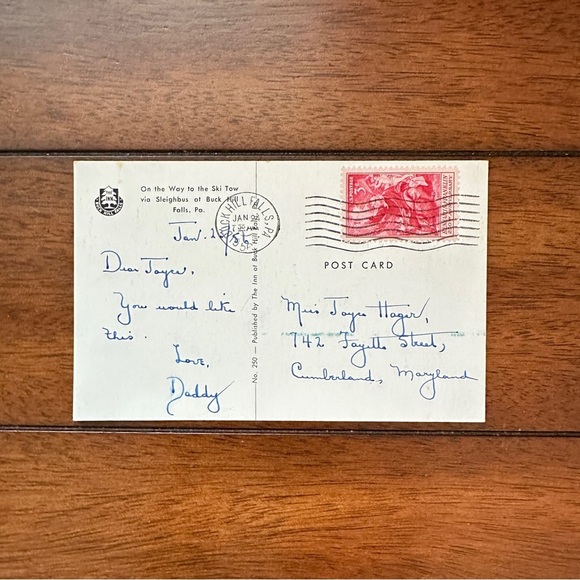 On the Way to the Ski Tow
via Sleighbus at Buck Hill
Falls, Pa.
THE INN
BUCK HILL FALLS
BUCK HILL FALLS, PA.
JAN
Dear Joyce,
You would like
this.
Love,
Daddy
No. 250 — Published by The Inn at Buck Hill Falls
POST CARD
Miss Joyce Hager,
742 Fayette Street,
Cumberland, Maryland